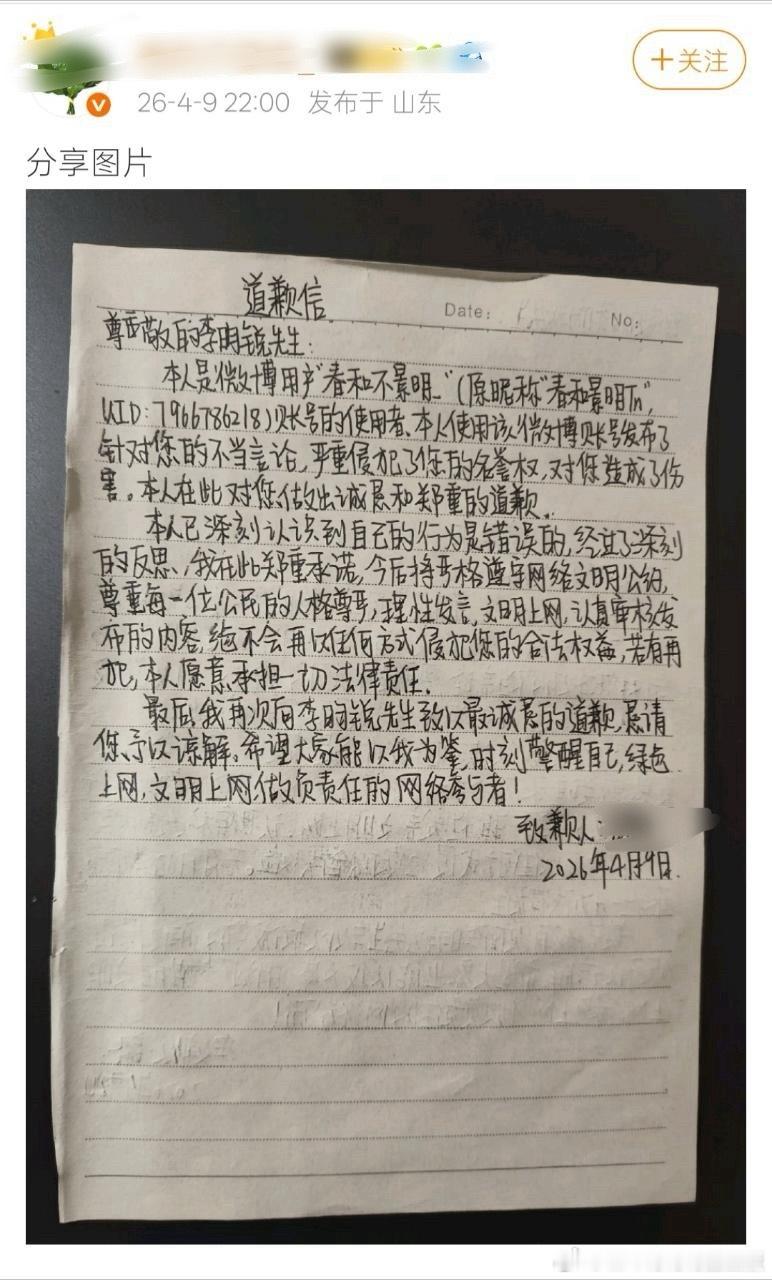 +关注
26-4-9 22:00 发布于 山东
分享图片
道歉信
Date:
No:
尊敬的李昀锐先生:
本人是微博用户"春和不景明_"(原昵称"春和景明Tn",
UID:7966786218)账号的使用者、本人使用该微博账号发布了
针对您的不当言论,严重侵犯了您的名誉权,对您造成了伤
害。本人在此对您做出诚恳和郑重的道歉.
本人已深刻认识到自己的行为是错误的,经过了深刻
的反思,我在此郑重承诺,今后将严格遵守网络文明公约,
尊重每一位公民的人格尊严,理性发言,文明上网,认真审核发
布的内容,绝不会再以任何方式侵犯您的合法权益,若有再
犯,本人愿意承担一切法律责任.
最后,我再次向李昀锐先生致以最诚恳的道歉,恳请
您予以谅解。希望大家能以我为鉴,时刻警醒自己,绿色
上网,文明上网做负责任的网络参与者!
致歉人:
2026年4月9日.